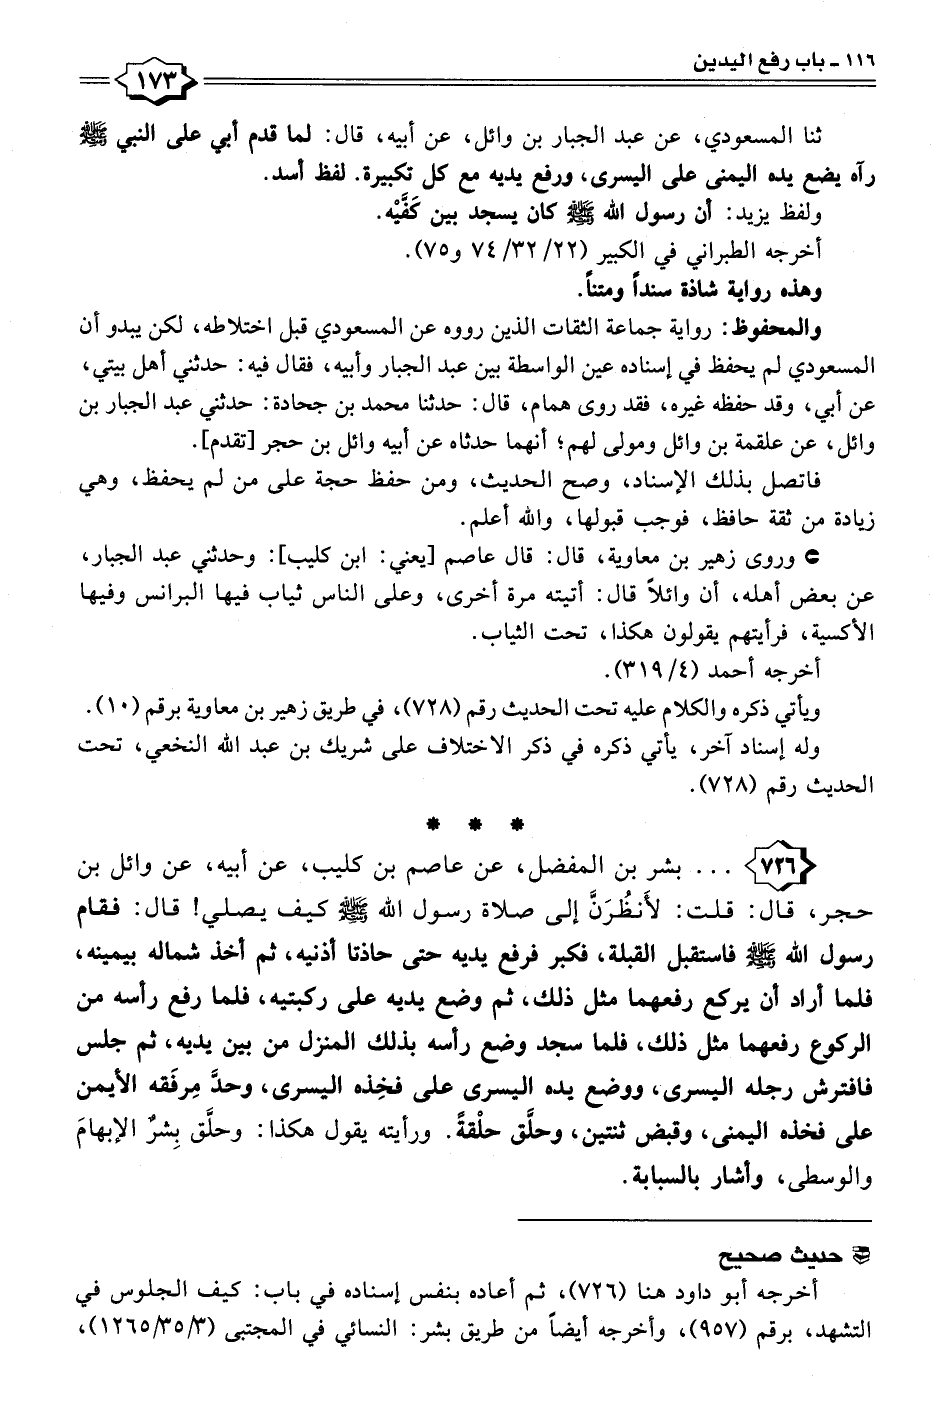 ١١٦ - باب رفع اليدين
١٧٣
ثنا المسعودي، عن عبد الجبار بن وائل، عن أبيه، قال: لما قدم أبي على النبي ﷺ
رآه يضع يده اليمنى على اليسرى، ورفع يديه مع كل تكبيرة. لفظ أسد.
ولفظ يزيد: أن رسول الله ﷺ كان يسجد بين كَفَّيْه.
أخرجه الطبراني في الكبير (٢٢/ ٣٢/ ٧٤ و٧٥).
وهذه رواية شاذة سنداً ومتناً.
والمحفوظ: رواية جماعة الثقات الذين رووه عن المسعودي قبل اختلاطه، لكن يبدو أن
المسعودي لم يحفظ في إسناده عين الواسطة بين عبد الجبار وأبيه، فقال فيه: حدثني أهل بيتي،
عن أبي، وقد حفظه غيره، فقد روى همام، قال: حدثنا محمد بن جحادة: حدثني عبد الجبار بن
وائل، عن علقمة بن وائل ومولى لهم؛ أنهما حدثاه عن أبيه وائل بن حجر [تقدم].
فاتصل بذلك الإسناد، وصح الحديث، ومن حفظ حجة على من لم يحفظ، وهي
زيادة من ثقة حافظ، فوجب قبولها، والله أعلم.
وروى زهير بن معاوية، قال: قال عاصم [يعني: ابن كليب]: وحدثني عبد الجبار،
عن بعض أهله، أن وائلاً قال: أتيته مرة أخرى، وعلى الناس ثياب فيها البرانس وفيها
الأكسية، فرأيتهم يقولون هكذا، تحت الثياب.
أخرجه أحمد (٤/ ٣١٩).
ويأتي ذكره والكلام عليه تحت الحديث رقم (٧٢٨)، في طريق زهير بن معاوية برقم (١٠).
وله إسناد آخر، يأتي ذكره في ذكر الاختلاف على شريك بن عبد الله النخعي، تحت
الحديث رقم (٧٢٨).
* * *
٧٢٦ ... بشر بن المفضل، عن عاصم بن كليب، عن أبيه، عن وائل بن
حجر، قال: قلت: لأَنظُرَنَّ إلى صلاة رسول الله ﷺ كيف يصلي! قال: فقام
رسول الله ﷺ فاستقبل القبلة، فكبر فرفع يديه حتى حاذتا أذنيه، ثم أخذ شماله بيمينه،
فلما أراد أن يركع رفعهما مثل ذلك، ثم وضع يديه على ركبتيه، فلما رفع رأسه من
الركوع رفعهما مثل ذلك، فلما سجد وضع رأسه بذلك المنزل من بين يديه، ثم جلس
فافترش رجله اليسرى، ووضع يده اليسرى على فخِذه اليسرى، وحدَّ مِرفَقه الأيمن
على فخذه اليمنى، وقبض ثنتين، وحلَّق حلْقةً. ورأيته يقول هكذا: وحلَّق بِشرٌ الإبهامَ
والوسطى، وأشار بالسبابة.
حديث صحيح
أخرجه أبو داود هنا (٧٢٦)، ثم أعاده بنفس إسناده في باب: كيف الجلوس في
التشهد، برقم (٩٥٧)، وأخرجه أيضاً من طريق بشر: النسائي في المجتبى (٣/ ٣٥/ ١٢٦٥)،